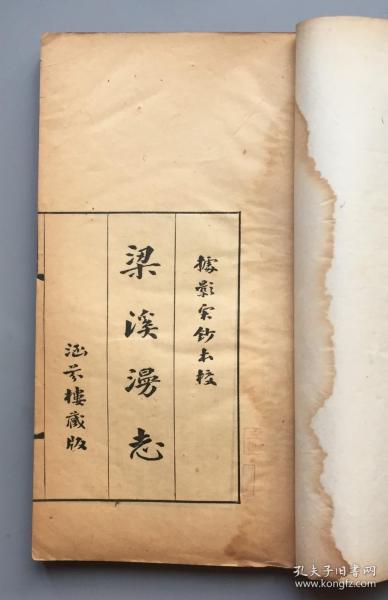 據影宋鈔本校
梁溪漫志
涵芬樓藏版
孔夫子旧书网
www.kongfz.com